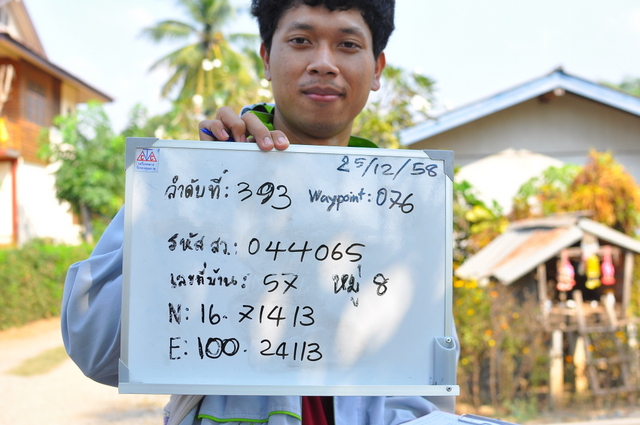 25/12/58
ลำดับที่: 393 Waypoint: 076
รหัส สว.: 044065
เลขที่บ้าน: 57 หมู่ 8
N: 16.71413
E: 100.24113